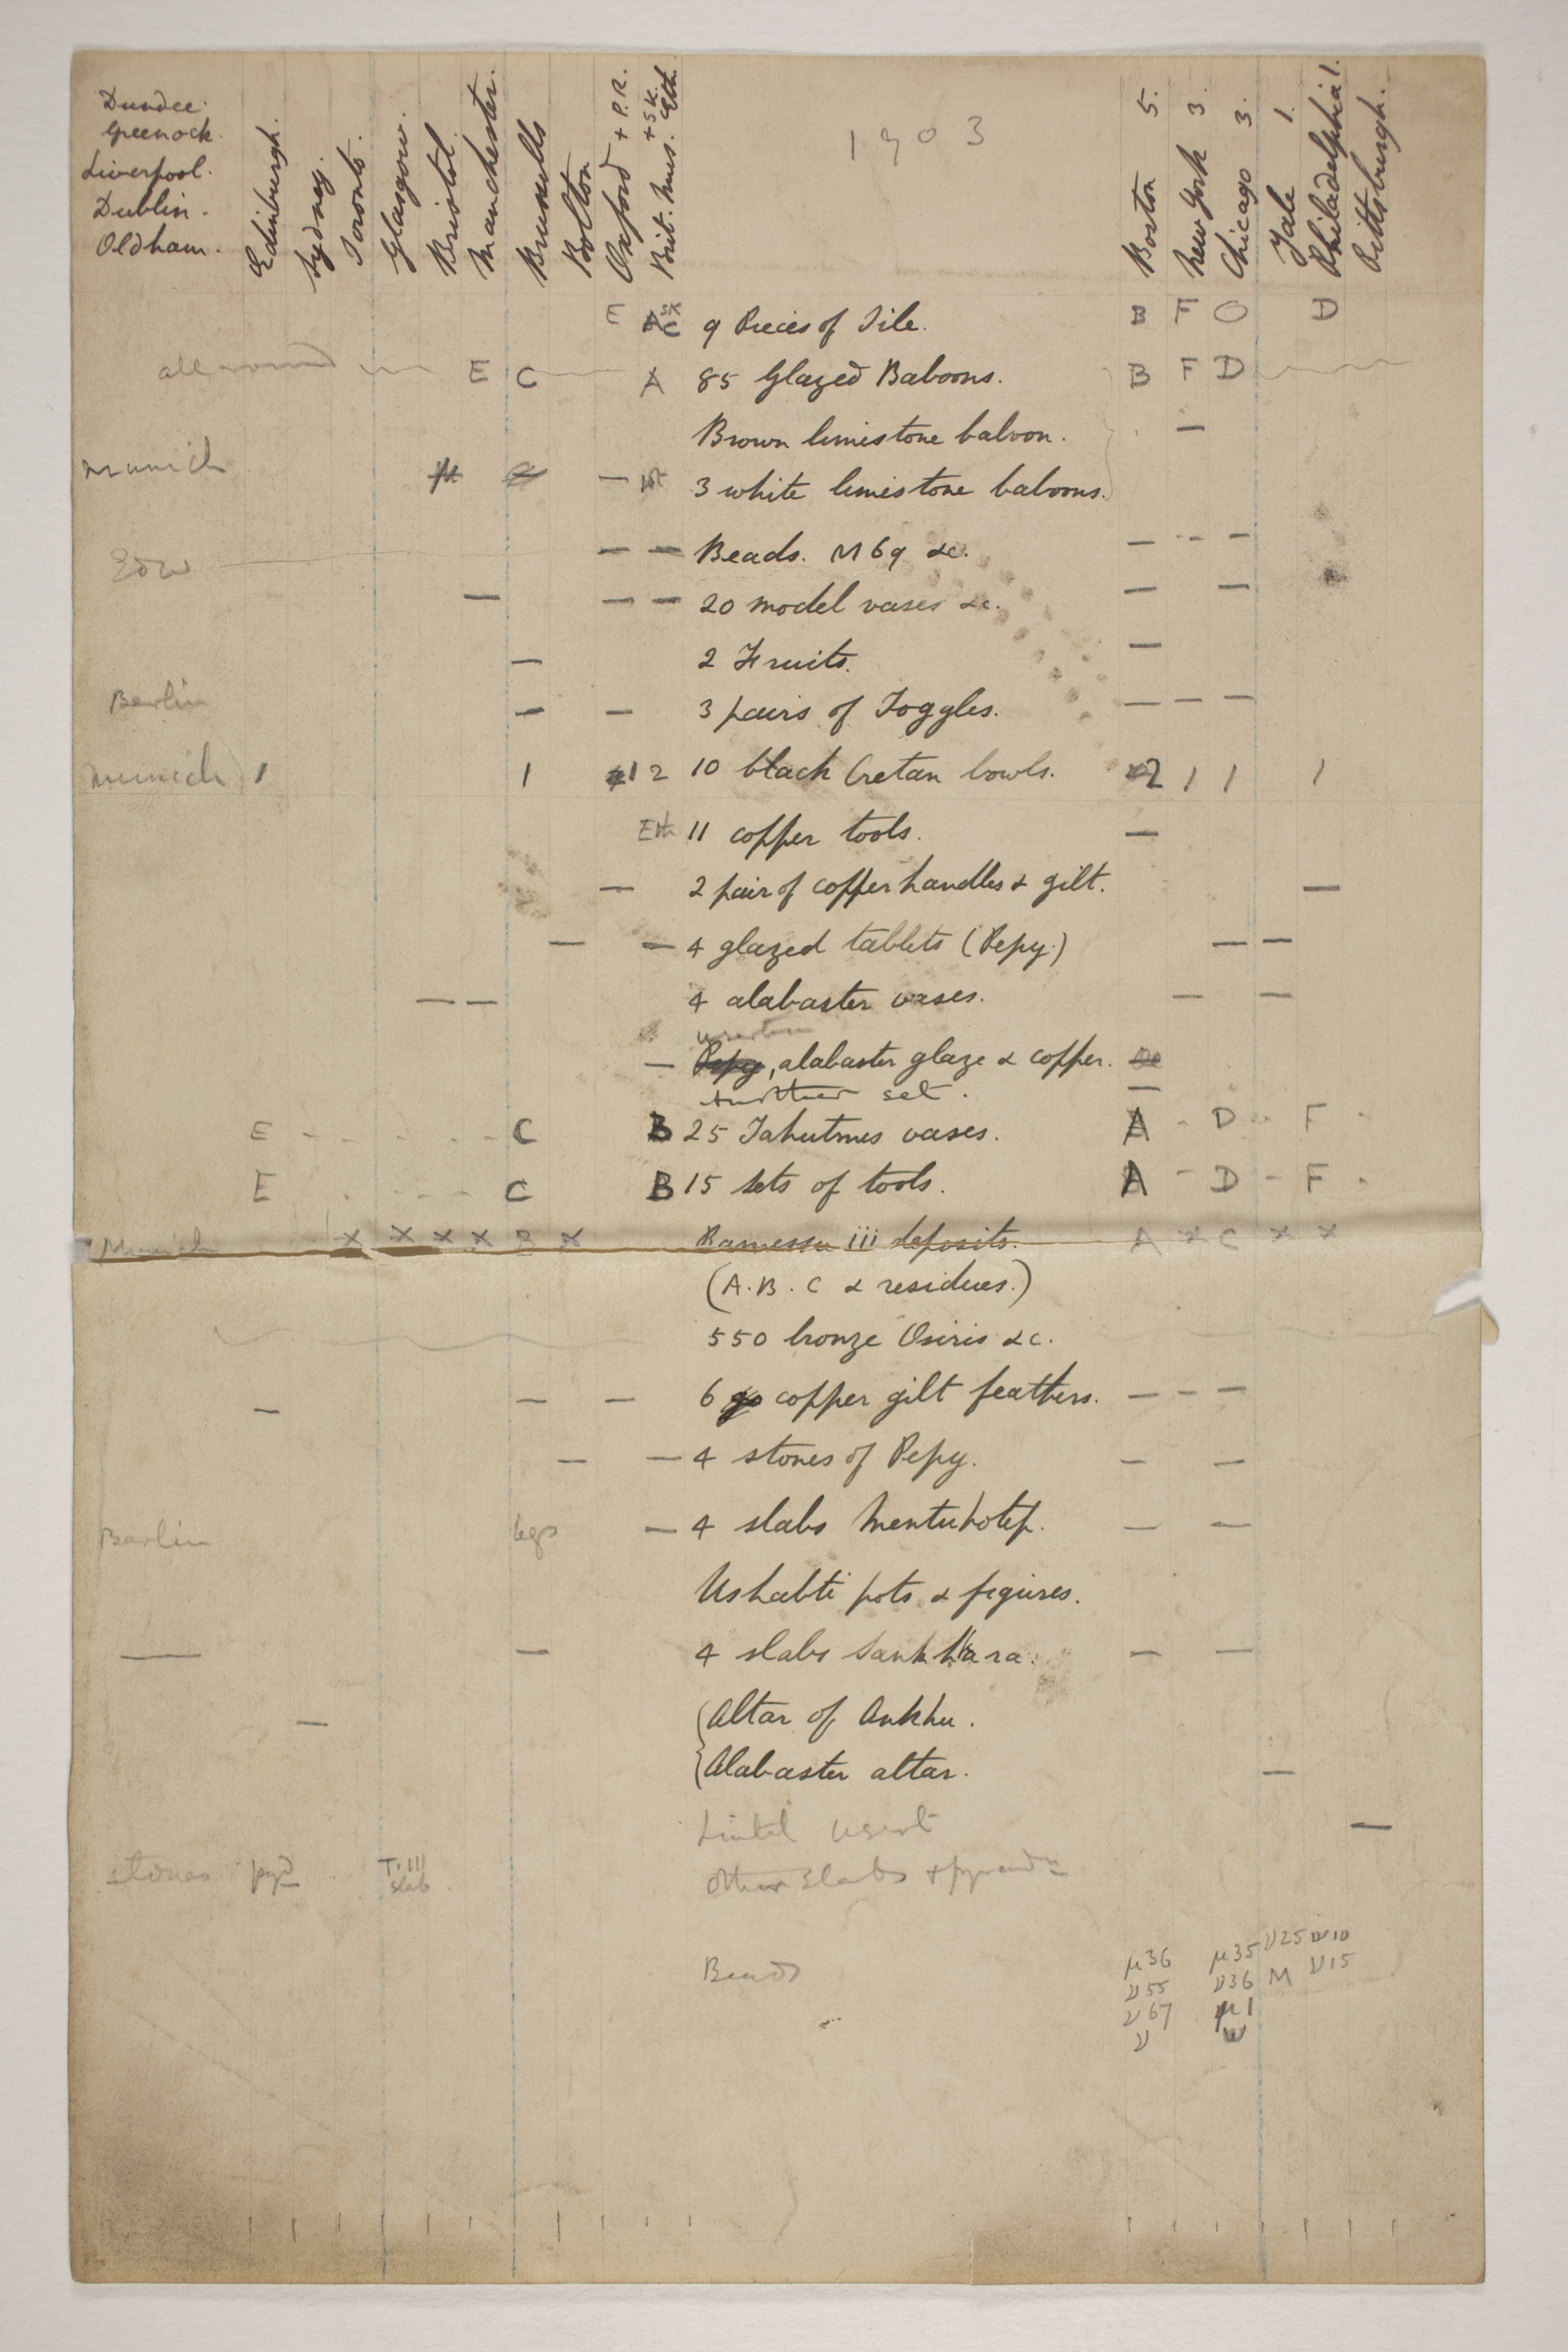 1903
Dundee.
Greenock.
Liverpool.
Dublin.
Oldham.
Edinburgh.
Sydney.
Toronto.
Glasgow.
Bristol.
Manchester.
Brussells
Bolton
Oxford + P.R.
Brit. Mus. + S.K. Eth.
Boston 5.
New York 3.
Chicago 3.
Yale 1.
Philadelphia 1.
Pittsburgh.
E A SK C 9 Pieces of Tile. B F O D
all round E C A 85 Glazed Baboons. B F D
Brown limestone baboon. —
Munich — 3 white limestone baboons.
Edw — — Beads. M69 &c. — - - —
— — — 20 model vases &c. — —
— 2 Fruits. —
Berlin — — 3 pairs of Toggles. — — —
Munich 1 1 1 2 10 black Cretan bowls. 2 1 1 1
Eth 11 copper tools. —
— 2 pair of copper handles & gilt. —
— — 4 glazed tablets (Pepy.) — —
— — 4 alabaster vases. — —
— Pepy, alabaster glaze & copper.
another set. —
E - - - - - C B 25 Tahutmes vases. A - D - F -
E - - - - C B 15 sets of tools. A - D - F -
Munich x x x x B x Ramessu iii deposits. A x C x x
(A.B.C & residues.)
550 bronze Osiris &c.
— — — 6 copper gilt feathers. — — —
— — 4 stones of Pepy. — —
Berlin legs — 4 slabs Mentuhotep. — —
Ushabti pots & figures.
— — 4 slabs Sankhkara. — —
— Altar of Ankhu.
Alabaster altar. —
Lintel Usert —
stones pyd T.III slab other slabs +
Beads
μ36 μ35 ν25 ν10
ν55 ν36 M ν15
ν67 μ1
ν W